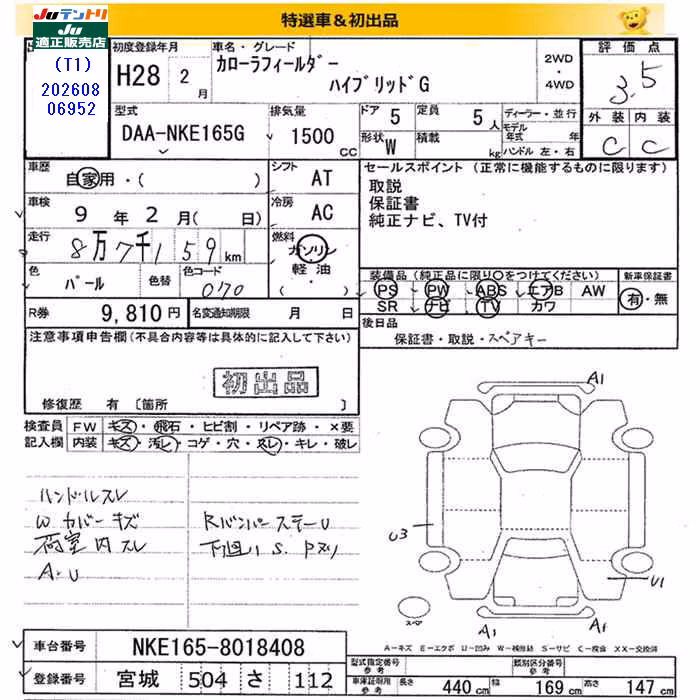 JUテントリ
JU
適正販売店
特選車＆初出品
(T1)
202608
06952
初度登録年月
H28 2 月
車名・グレード
カローラフィールダー
ハイブリッドG
2WD
・
4WD
評価点
3.5
外装 内装
C C
型式
DAA-NKE165G
排気量
1500 CC
ドア 5
定員 5 人
形状 W
積載 kg
ディーラー・並行
モデル年式 年
ハンドル 左・右
車歴
自家用・( )
シフト AT
車検
9 年 2 月 ( 日)
冷房 AC
走行
8万7千159 km
燃料
ガソリン
軽油
・( )
色
パール
色替
色コード
070
セールスポイント（正常に機能するものに限ります）
取説
保証書
純正ナビ、TV付
装備品（純正品に限り○をつけてください）
新車保証書
PS PW ABS エアB AW
SR ナビ TV カワ
有・無
R券 9,810 円
名変通知期限 月 日
後日品
保証書・取説・スペアキー
注意事項申告欄（不具合内容等は具体的に記入して下さい）
初出品
修復歴 有〔箇所 〕
検査員
記入欄
FW キズ・飛石・ヒビ割・リペア跡・×要
内装 キズ・汚レ・コゲ・穴・スレ・キレ・破レ
ハンドルスレ
Wカバーキズ
荷室内スレ
A・U
RバンパーステーU
下廻り S. Pヌリ
A1
U3
U1
A1
A1
スペア
A－キズ E－エクボ U－凹み W－補修跡 S－サビ C－腐食 XX－交換済
車台番号 NKE165-8018408
登録番号 宮城 504 さ 112
型式指定番号
参考
類別区分番号
参考
車庫証明用
参考
長さ 440 cm
幅 169 cm
高さ 147 cm